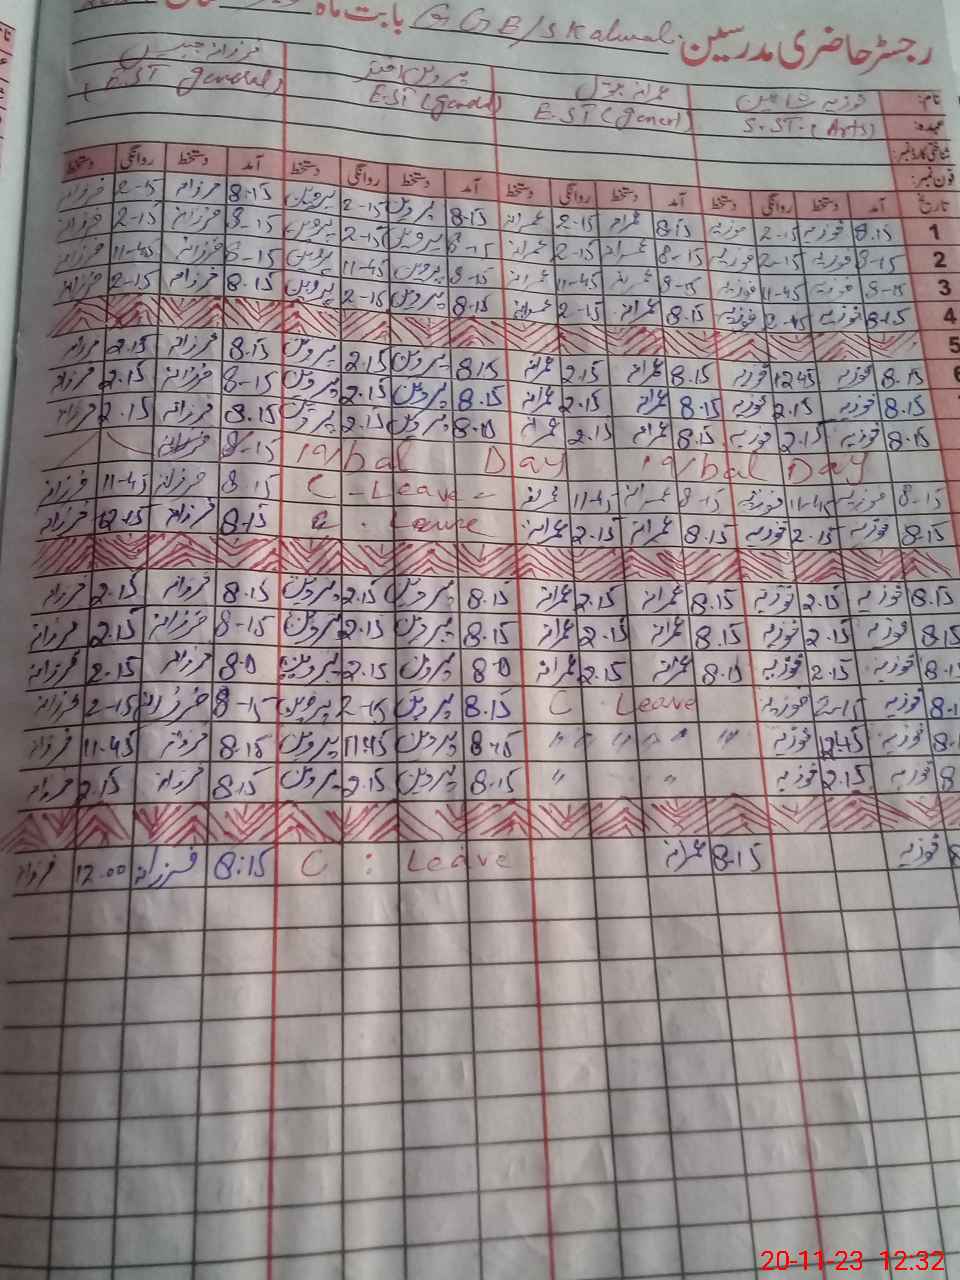 رجسٹر حاضری مدرسین G G E/S Kalwal بابت ماہ
نام: فوزیہ شاہین عمرانہ بتول پروین اختر فرزانہ جبیں
عہدہ: S.ST.(Arts) E.ST(General) E.ST(General) (E.ST General)
شناختی کارڈ نمبر:
فون نمبر:
تاریخ آمد دستخط روانگی دستخط آمد دستخط روانگی دستخط آمد دستخط روانگی دستخط آمد دستخط روانگی دستخط
1 8.15 فوزیہ 2-15 فوزیہ 8.15 عمرانہ 2-15 عمرانہ 8.15 پروین 2-15 پروین 8.15 فرزانہ 2-15 فرزانہ
2 8-15 فوزیہ 2-15 فوزیہ 8-15 عمرانہ 2-15 عمرانہ 8-15 پروین 2-15 پروین 8-15 فرزانہ 2-15 فرزانہ
3 8-15 فوزیہ 11-45 فوزیہ 8-15 عمرانہ 11-45 عمرانہ 8-15 پروین 11-45 پروین 8-15 فرزانہ 11-45 فرزانہ
4 8.15 فوزیہ 2-15 فوزیہ 8.15 عمرانہ 2-15 عمرانہ 8.15 پروین 2-15 پروین 8.15 فرزانہ 2-15 فرزانہ
5
6 8.15 فوزیہ 12.45 فوزیہ 8.15 عمرانہ 2.15 عمرانہ 8.15 پروین 2.15 پروین 8.15 فرزانہ 2.15 فرزانہ
8.15 فوزیہ 2.15 فوزیہ 8.15 عمرانہ 2.15 عمرانہ 8.15 پروین 2.15 پروین 8-15 فرزانہ 2.15 فرزانہ
8.15 فوزیہ 2.15 فوزیہ 8.15 عمرانہ 2.15 عمرانہ 8.15 پروین 2.15 پروین 8.15 فرزانہ 2.15 فرزانہ
Iqbal Day Iqbal Day 8-15 فرزانہ
8-15 فوزیہ 11-45 فوزیہ 8-15 عمرانہ 11-45 عمرانہ C-Leave- 8-15 فرزانہ 11-45 فرزانہ
8.15 فوزیہ 2.15 فوزیہ 8.15 عمرانہ 2.15 عمرانہ C. Leave 8.15 فرزانہ 12.15 فرزانہ
8.15 فوزیہ 2.15 فوزیہ 8.15 عمرانہ 2.15 عمرانہ 8.15 پروین 2.15 پروین 8.15 فرزانہ 2.15 فرزانہ
8.15 فوزیہ 2.15 فوزیہ 8.15 عمرانہ 2.15 عمرانہ 8.15 پروین 2.15 پروین 8-15 فرزانہ 2.15 فرزانہ
8.1 فوزیہ 2.15 فوزیہ 8.15 عمرانہ 2.15 عمرانہ 8.15 پروین 2.15 پروین 8.15 فرزانہ 2.15 فرزانہ
8.1 فوزیہ 2-15 فوزیہ C. Leave 8.15 پروین 2-15 پروین 8-15 فرزانہ 2-15 فرزانہ
8. فوزیہ 12.45 فوزیہ " " " " " " 8.15 پروین 11.45 پروین 8.15 فرزانہ 11-45 فرزانہ
8 فوزیہ 2.15 فوزیہ " " 8.15 پروین 2.15 پروین 8.15 فرزانہ 2.15 فرزانہ
8 فوزیہ 8.15 عمرانہ C: Leave 8:15 فرزانہ 12.00 فرزانہ
20-11-23 12:32